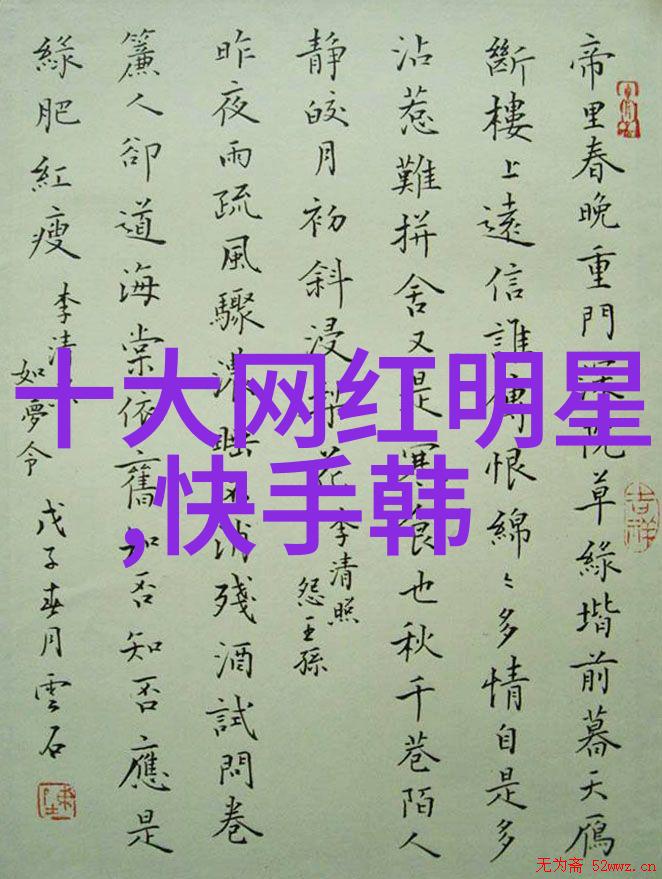 帝里春晚重門深院草綠堦前暮天雁
斷樓上遠信誰傳恨綿〻多情自是多
沾惹難拼舍又是寒食也秋千巷陌人
靜皎月初斜浸梨花
李清照
怨王孫
昨夜雨疏風驟濃睡不消殘酒試問卷
簾人卻道海棠依舊知否知否應是
綠肥紅瘦
李清
如夢令
戊子春月雲石
十大网红明星
,快手韩
吉祥
无为斋 52wwz.cn